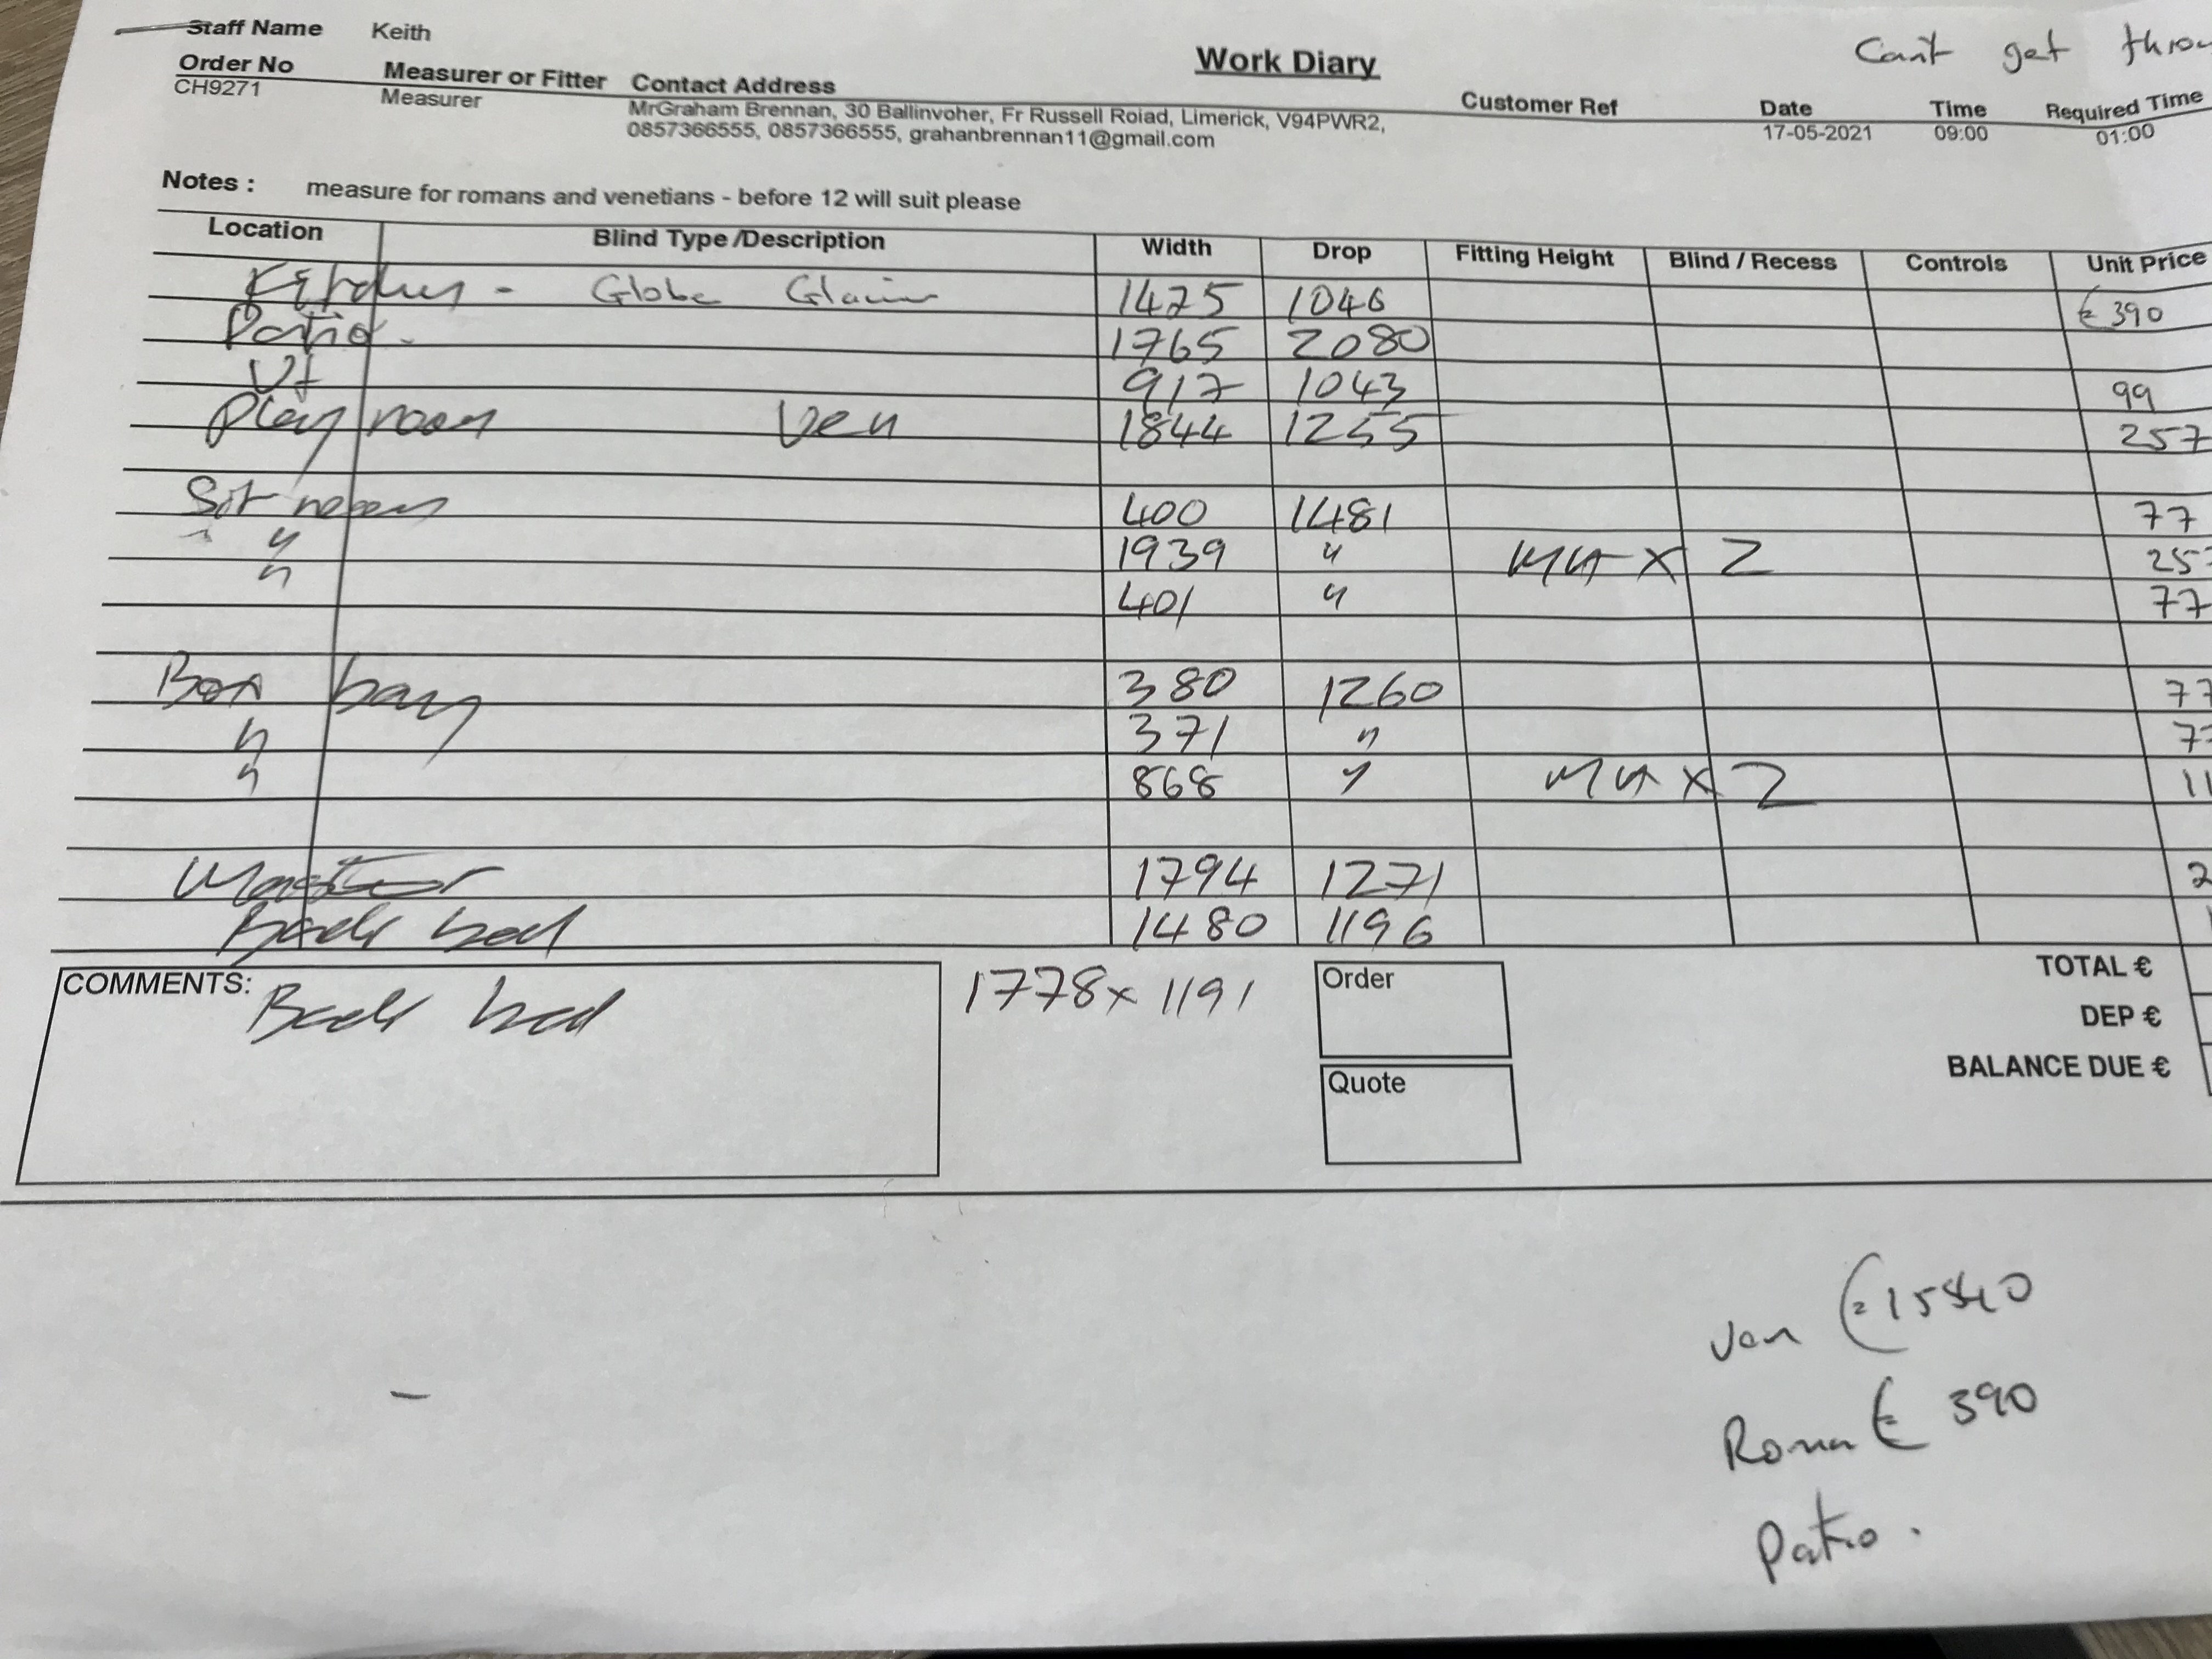 Staff Name Keith
Work Diary
Can't get throu
Order No Measurer or Fitter Contact Address Customer Ref Date Time Required Time
CH9271 Measurer MrGraham Brennan, 30 Ballinvoher, Fr Russell Roiad, Limerick, V94PWR2, 17-05-2021 09:00 01:00
0857366555, 0857366555, grahanbrennan11@gmail.com
Notes : measure for romans and venetians - before 12 will suit please
Location Blind Type /Description Width Drop Fitting Height Blind / Recess Controls Unit Price
Kitchen - Globe 1425 1046 € 390
Patio - 1765 2080
Ut 917 1043 99
Play room Ven 1844 1255 257
Sit room 400 1481 77
" 1939 " x 2 25
" 401 " 77
Box bay 380 1260 77
" 371 " 7
" 868 " x 2 11
Master 1794 1271 2
Back bed 1480 1196 1
COMMENTS: Back bed 1778 x 1191
Order
Quote
TOTAL €
DEP €
BALANCE DUE €
Ven € 1540
Roman € 390
Patio .